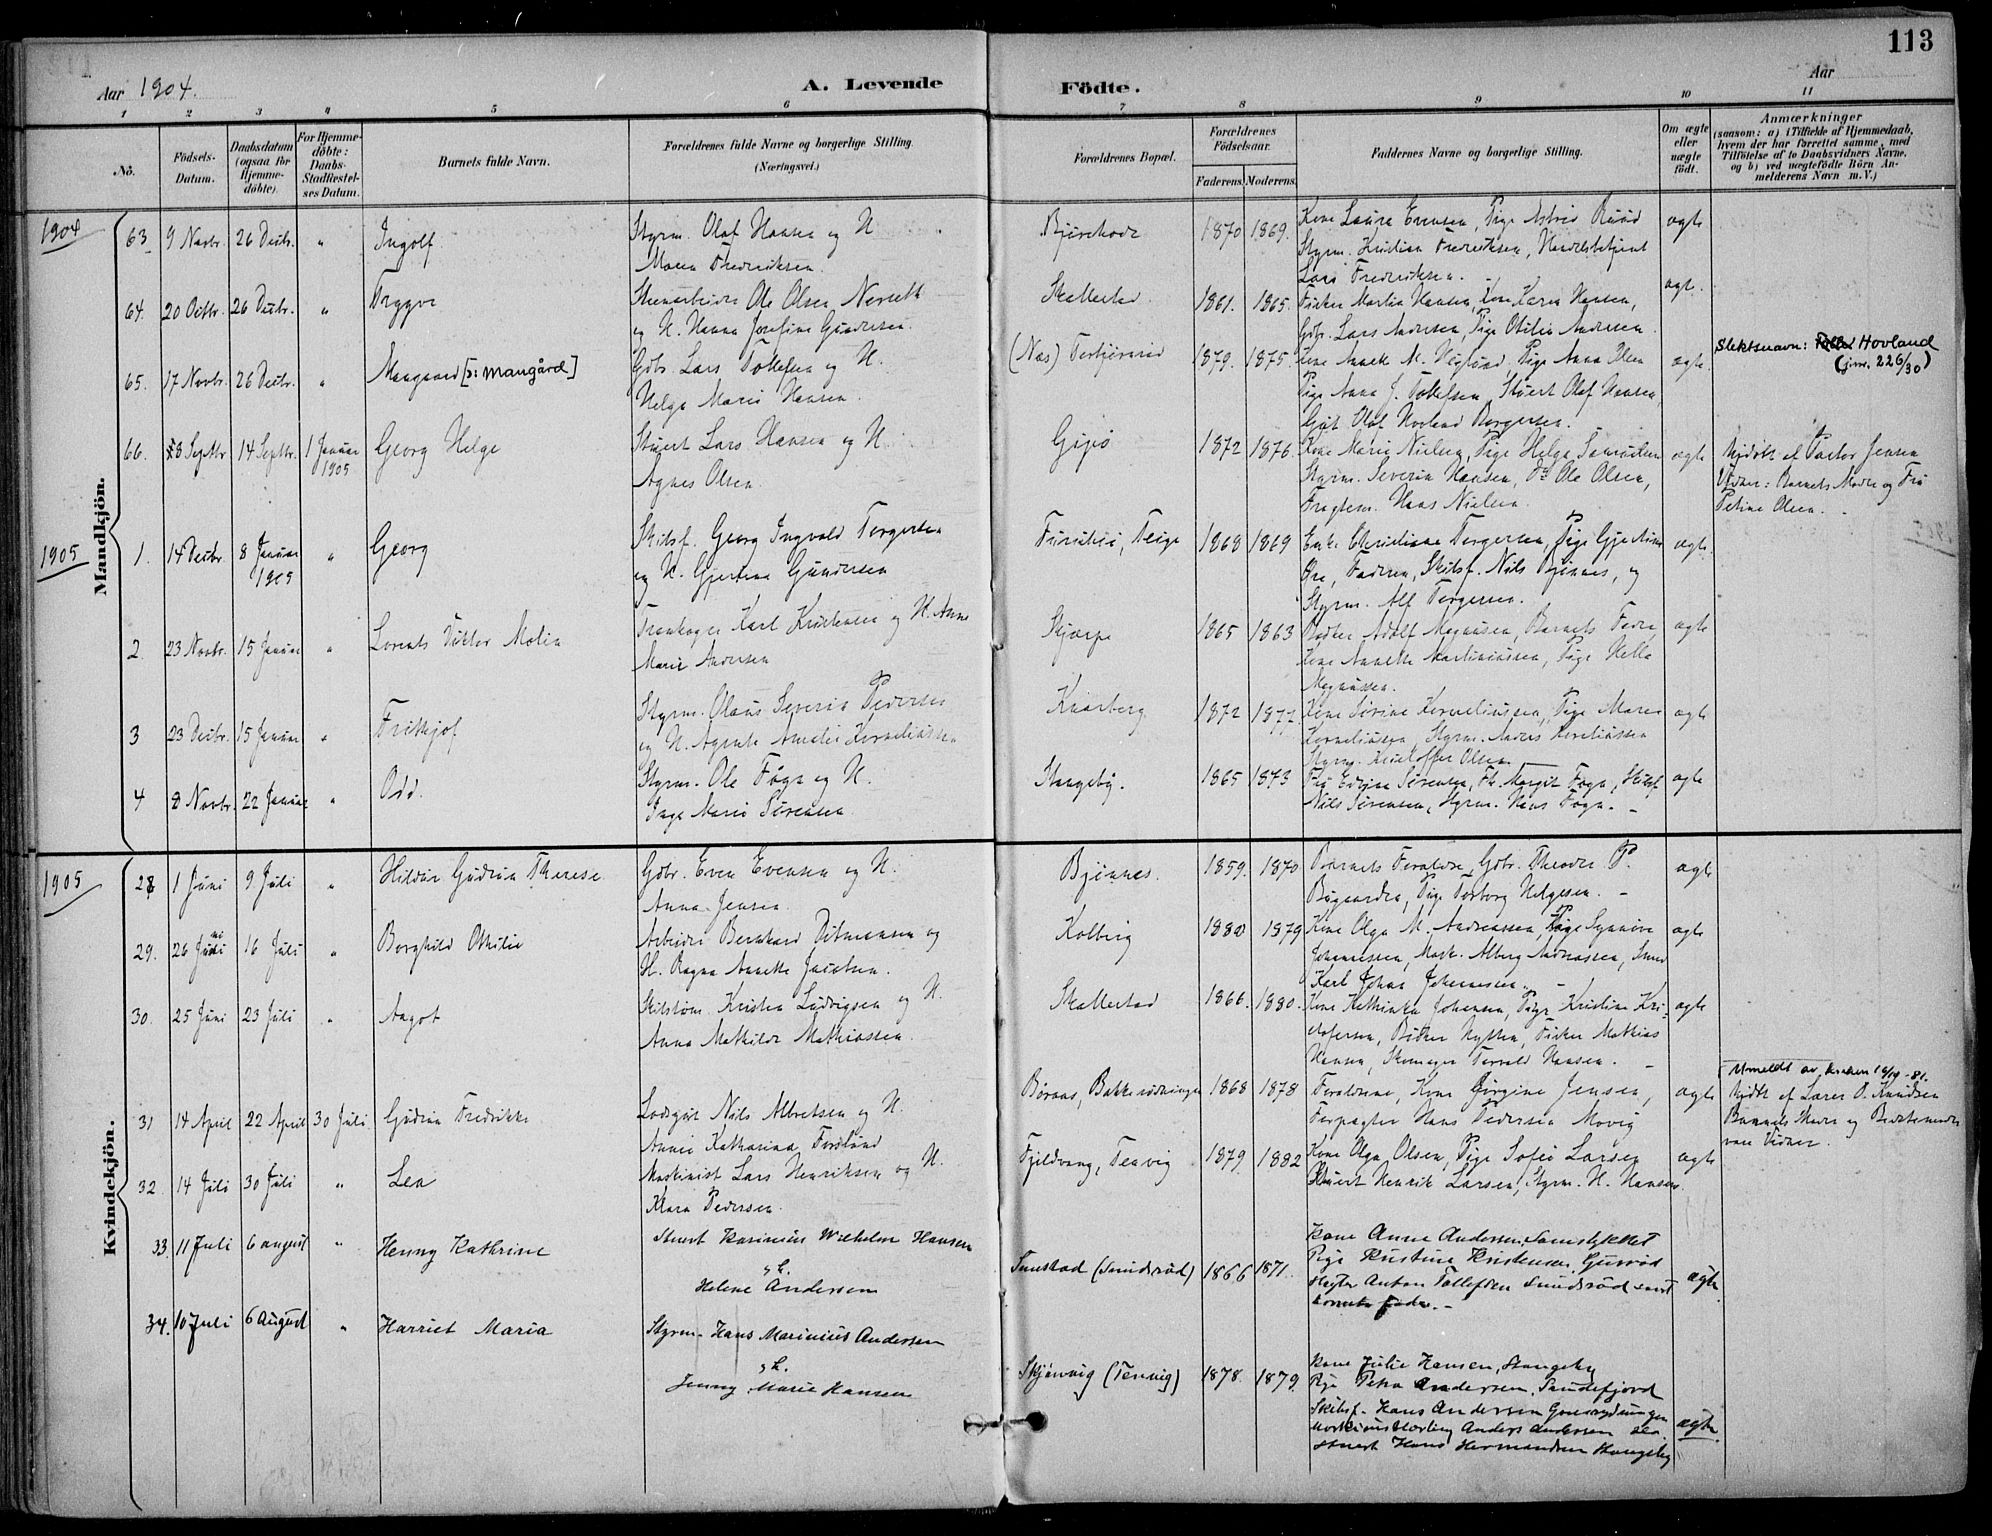 113
Aar 1904.
A. Levende Födte.
Aar
1 2 3 4 5 6 7 8 9 10 11
Nö.
Födsels-Datum.
Daabsdatum (ogsaa for Hjemmedöbte).
For Hjemmedöbte: Daabs-Stadfæstelses Datum.
Barnets fulde Navn.
Forældrenes fulde Navne og borgerlige Stilling. (Næringsvei.)
Forældrenes Bopæl.
Forældrenes Födselsaar.
Faderens. Moderens.
Faddernes Navne og borgerlige Stilling.
Om ægte eller uægte födt.
Anmærkninger
(saasom: a) i Tilfælde af Hjemmedaab, hvem der har forrettet samme, med Tilföielse af to Daabsvidners Navne, og b) ved uægtefödte Börn Anmelderens Navn m. V.)
Mandkjön.
1904
63 9 Novbr. 26 Decbr. " Ingolf Styrm. Olaf Hansen og H. Maren Fredriksen. 1870 1869. Kone Laura Evensen, Pige Astrid Ruud
Styrm. Kristian Fredriksen, Handelsbetjent
Lars Fredriksen. - ægte
64. 20 Octbr. 26 Decbr. " Tryggve Stenarbeider Ole Olsen
og H. Hanna Josefine Gundersen. Skallestad 1861. 1865. Fisker Martin Hansen, Kone Karen Hansen,
Gdbr. Lars Andersen, Pige Otilie Andersen. ægte.
65. 17 Novbr. 26 Decbr. " Mangaard [ɔ: Mangård] Gdbr. Lars Tollefsen og H.
Helga Marie Hansen. (Næs) 1879. 1875. Pige Anna Olsen
Pige Anna J. Tollefsen, Stuert Olaf Hansen,
ægte. Slektsnavn: Hovland
(jnr. 226/30)
66. 8 Septbr. 14 Septbr. 1 Januar 1905 Georg Helge Stuert Lars Hansen og H.
Agnes Olsen. 1872 1876. Kone Marie Nielsen, Pige Helga Samuelsen
Styrm. Severin Hansen, Do Ole Olsen,
Hans Nielsen ægte Hjdøbt af Pastor Jensen
Vidner: Barnets Moder og Fru
Petine Olsen. -
1905
1. 14 Decbr. 8 Januar 1905 " Georg Skibsf. Georg Ingvald Torgersen
og H. Gjertine Gundersen Teige 1868 1869 Enke Christiane Torgersen, Pige Gjertine
Øre, Faderen, Skibsf. Nils Bjønnes, og
Styrm. Alf Torgersen. ægte.
2. 23 Novbr. 15 Januar " Lorents Viktor Malin Trankoger Karl Kristensen og H. Anne
Marie Andersen Skjærpe 1865 1863 Adolf Magnussen, Barnets Fader,
Kone Annette Martiniussen, Pige Hella
Magnussen. ægte
3 23 Decbr. 15 Januar " Frithjof Styrm. Olaus Severin Pedersen
og H. Agnete Amalie Korneliussen Knarberg 1872 1877. Kone Sørine Korneliussen, Pige Maren
Korneliussen, Styrm. Anders Korneliussen
Styrm. Kristoffer Olsen ægte
4 8 Novbr. 22 Januar " Odd. Styrm. Ole Fogn og H.
Inga Marie Sørensen. Stangeby. 1865 1873 Fru Edvine Sørensen, Frk. Margit Fogn, Skibsf
Nils Sørensen, Styrm. Hans Fogn. - ægte
Kvindekjön.
1905
28 1 Juni 9 Juli " Hildur Gudrun Therese Gdbr. Even Evensen og H.
Anna Jensen Bjønnes. 1859. 1870 Barnets Forældre, Gdbr. Theodor P.
Bugaarden, Pige Torborg Helgesen. - ægte
29. 26 Juni 16 Juli " Borghild Othilie Arbeider Bernhard Ditmansen og
H. Ragna Annette Jacobsen. Kolberg 1880 1879 Kone Olga M. Andreassen, Pige Synnøve
Johannessen, Mask. Alberg Andreassen, Smed
Karl Johan Johannessen. - ægte
30. 25 Juni 23 Juli " Aagot Skibstøm. Kristen Ludvigsen og H.
Anna Mathilde Mathiassen. Skallestad 1866. 1880. Kone Kathinka Johansen, Pige Kristine Kri-
stofersen, Bødker Nytten, Fisker Mathias
Hansen, Skomager Torvald Hansen. - ægte
31 14 April 22 April 30 Juli Gudrun Fredrikke Lodsgut Nils Albretsen og H.
Annie Katharina Forslund 1868 1878 Forældrene, Kone Jørgine Jensen,
Forpagter Hans Pedersen Movig ægte Utmeldt av kirken
Hjdbt af Lærer O. Knudsen
Barnets Moder og
vare Vidner.
32. 14 Juli 30 Juli " Lea Maskinist Lars Henriksen og H.
Klara Pedersen. Fjeldvang, Tenvig 1879. 1882 Kone Olga Olsen, Pige Sofie Larsen
Stuert Henrik Larsen, Styrm. H. Hansen. ægte
33. 11 Juli 6 august " Henny Kathrine Stuert Karinius Wilhelm Hansen
og H.
Helene Andersen (Sundsrød) 1866 1871. Kone Anne Andersen,
Pige Kristine Kristensen,
Anton Tollefsen Sundsrød samt
barnets fader. - ægte
34. 10 Juli 6 August " Harriet Maria Styrm. Hans Marinius Andersen
og H.
Jenny Marie Hansen Skjærvig (Tenvig) 1878. 1879. Kone Julie Hansen, Stangeby
Pige Petra Andersen, Sandefjord
Skibsf. Hans Andersen
Anders Andersen
Stuert Hans Hermandsen Stangeby ægte.